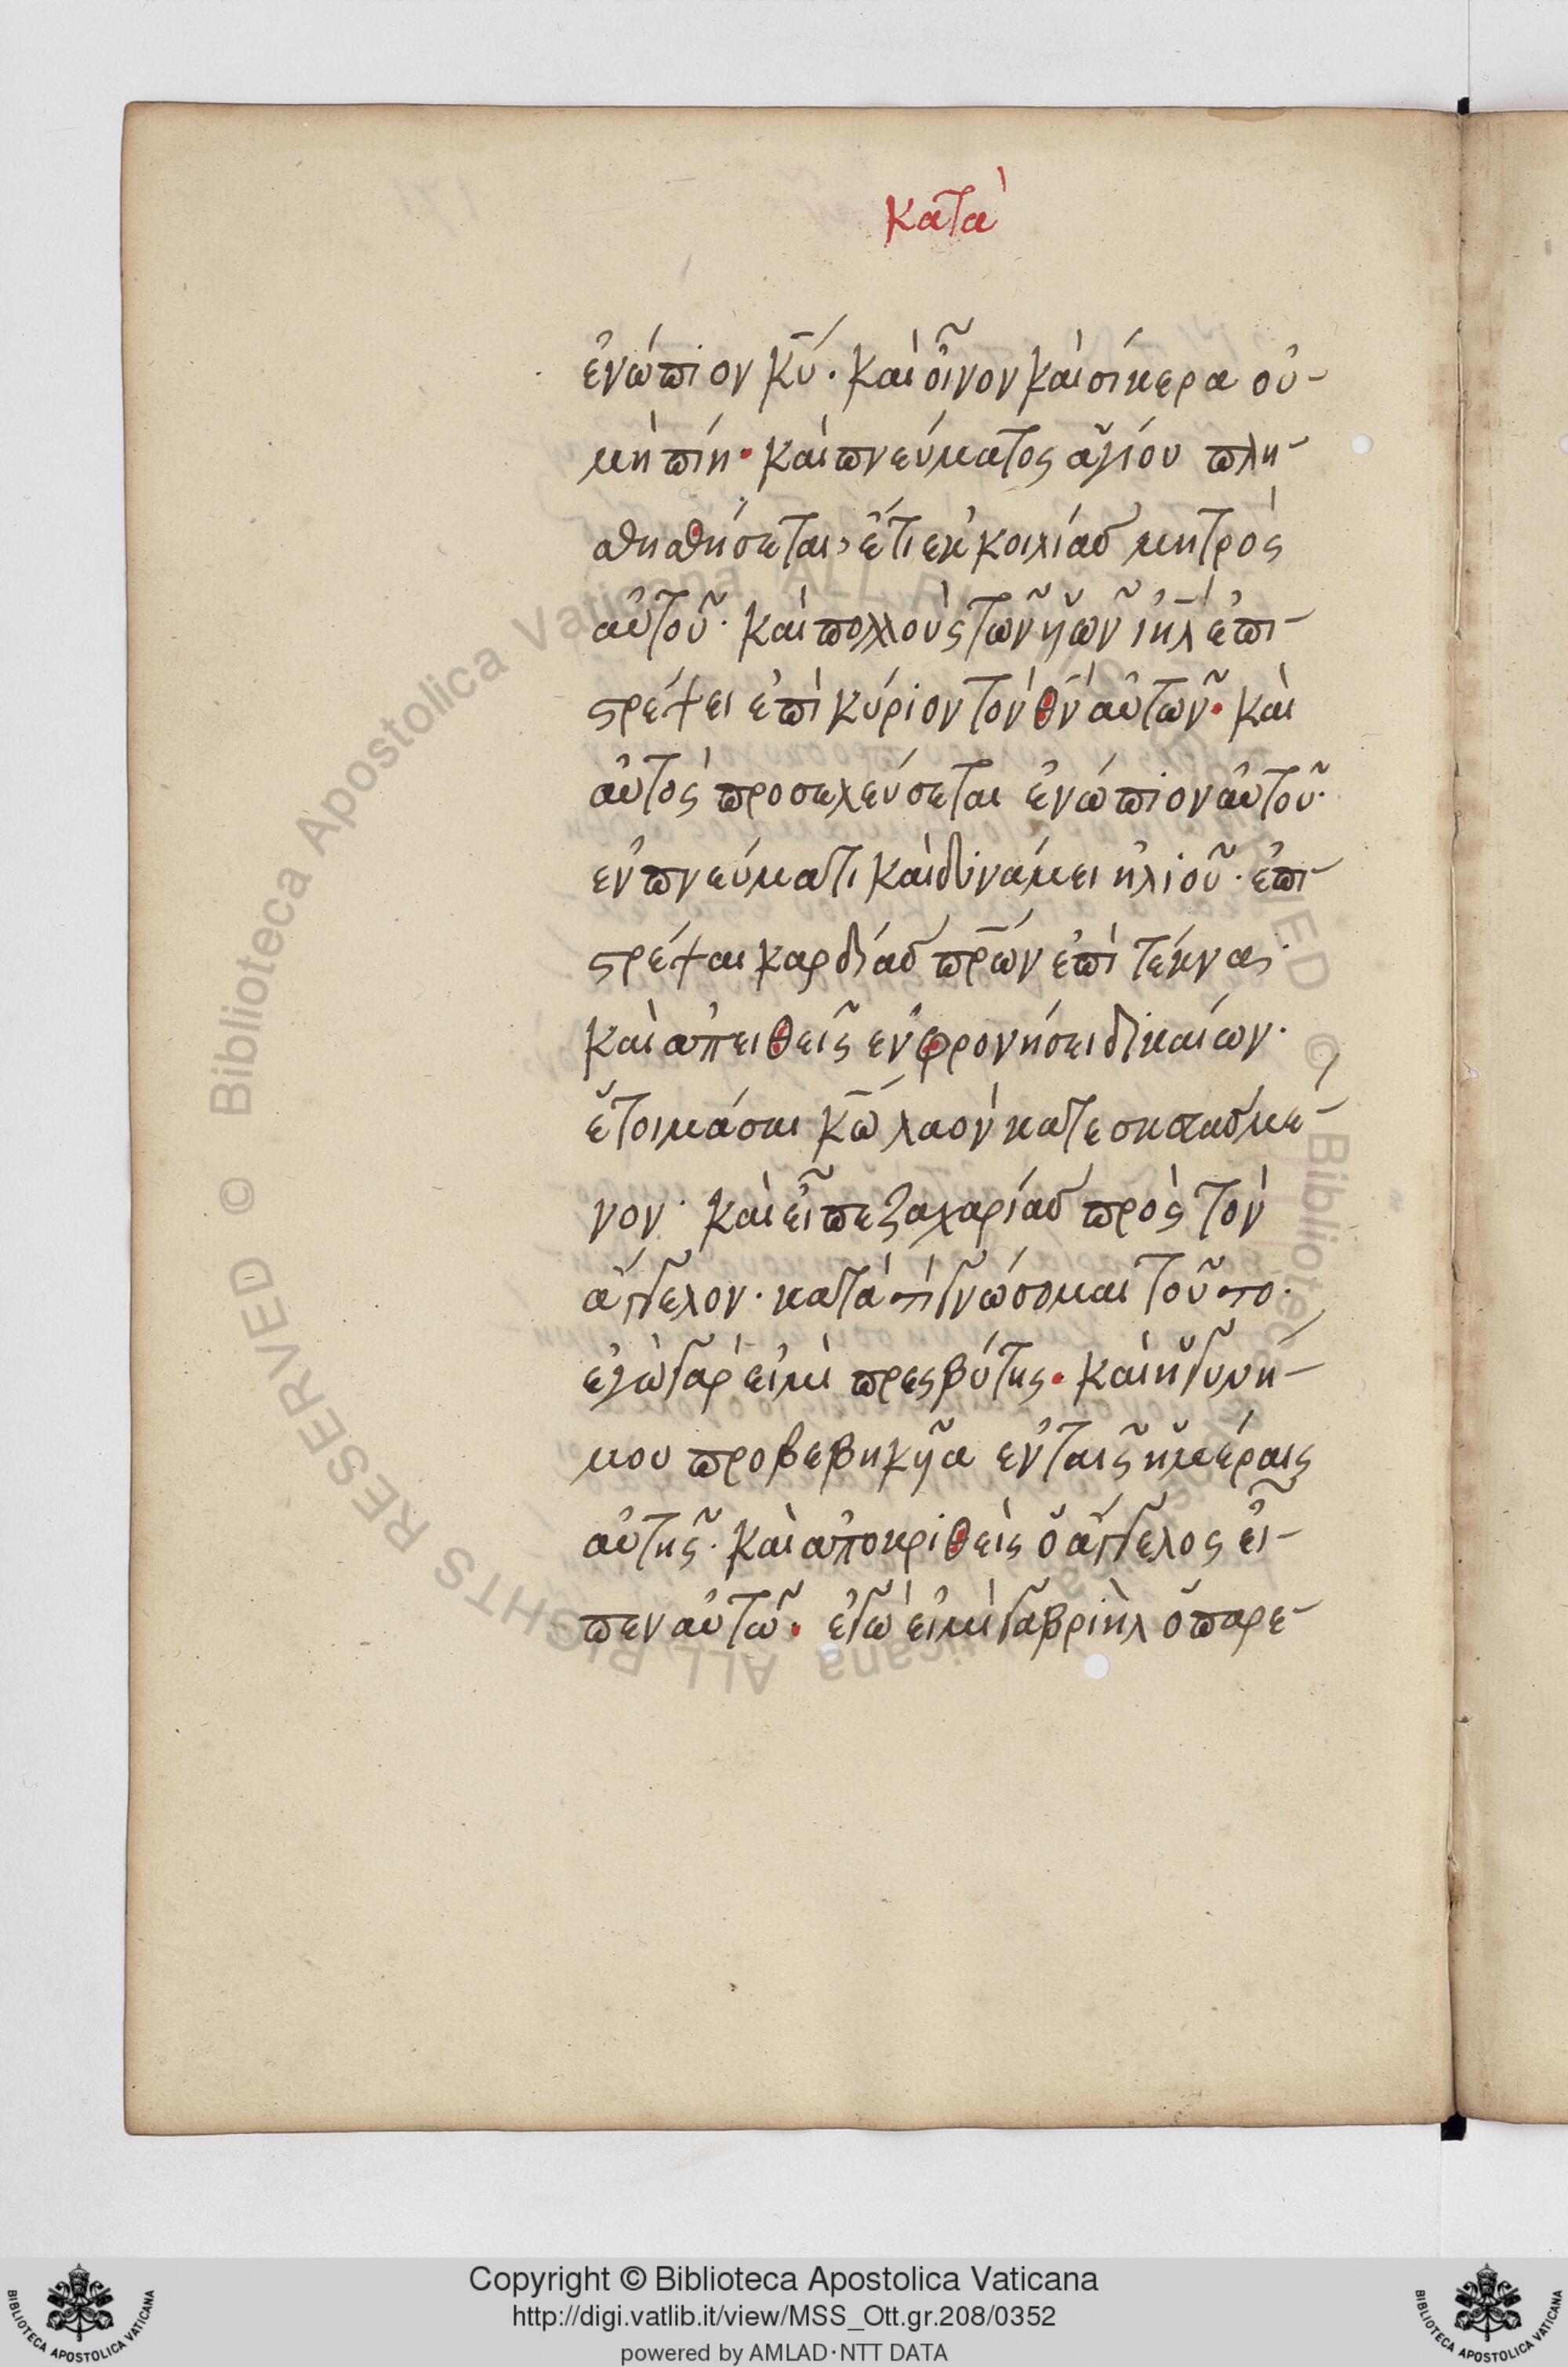 κατὰ
ἐνώπιον κ̅ύ· καὶ οἶνον καὶ σίκερα οὐ-
μὴ πίη· καὶ πνεύματος ἁγίου πλη-
θηθήσεται, ἔτι ἐκ κοιλίας μητρὸς
αὐτοῦ· καὶ πολλοὺς τῶν ὑῶν ἰη̅λ ἐπι-
στρέψει ἐπὶ κύριον τὸν θ̅ν αὐτῶν· καὶ
αὐτὸς προσελεύσεται ἐνώπιον αὐτοῦ·
ἐν πνεύματι καὶ δυνάμει ἠλιοῦ· ἐπι-
στρέψαι καρδίας π̅ρων ἐπὶ τέκνα·
καὶ ἀπειθεῖς ἐν φρονήσει δικαίων·
ἑτοιμάσαι κ̅ω λαὸν κατεσκευασμέ-
νον· καὶ εἶπε ζαχαρίας πρὸς τὸν
ἄγγελον· κατὰ τί γνώσομαι τοῦτο·
ἐγὼ γάρ εἰμι πρεσβύτης· καὶ ἡ γυνή-
μου προβεβηκῦα ἐν ταῖς ἡμέραις
αὐτῆς· καὶ ἀποκριθεὶς ὁ ἄγγελος εἶ-
πεν αὐτῶ· ἐγώ εἰμι γαβριὴλ ὁ παρε-
Copyright © Biblioteca Apostolica Vaticana
http://digi.vatlib.it/view/MSS_Ott.gr.208/0352
powered by AMLAD·NTT DATA
BIBLIOTECA APOSTOLICA VATICANA
BIBLIOTECA APOSTOLICA VATICANA
© Biblioteca Apostolica Vaticana ALL RIGHTS RESERVED © Biblioteca Apostolica Vaticana ALL RIGHTS RESERVED